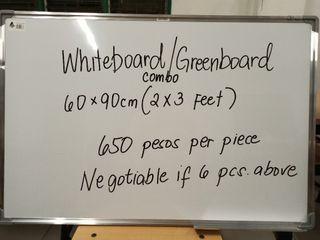 Whiteboard/Greenboard
combo
60x90cm (2x3 Feet)
650 pesos per piece
Negotiable if 6 pcs. above